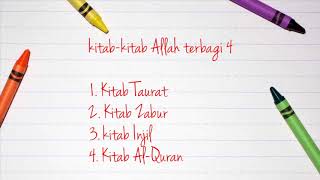 kitab-kitab Allah terbagi 4
1. Kitab Taurat
2. Kitab Zabur
3. kitab Injil
4. Kitab Al-Quran